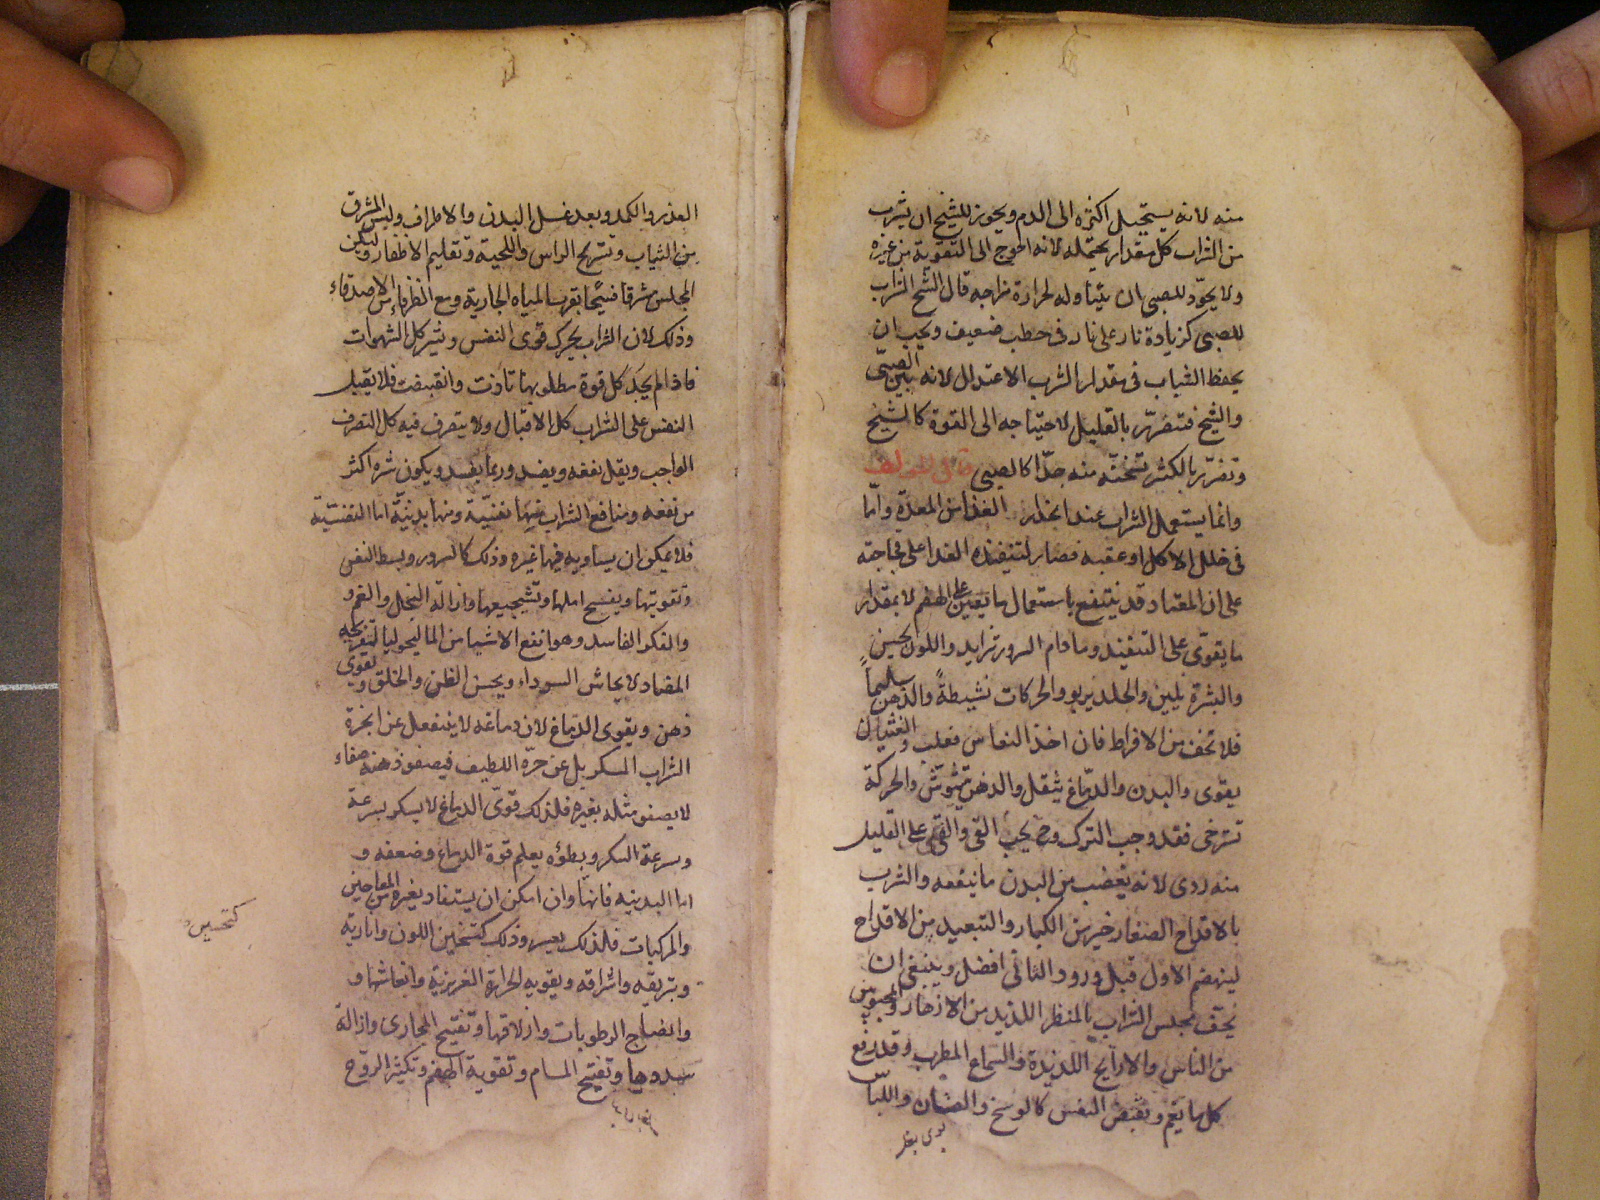 منه لانه يستحيل اكثره الى الدم ويجوز للشيخ ان يشرب
من الشراب كل مقدار يحتمله لانه احوج الى التقوية من غيره
ولا يجوّد للصبى ان يتناوله لحرارة مزاجه قال الشيخ الشراب
للصبى كزيادة نار على نار فى حطب ضعيف ويجب ان
يحفظ الشباب فى مقدار الشرب الاعتدال لانه بين الصبىّ
والشيخ فتضرّر بالقليل لاحتياجه الى القوة كالشيخ
وتضرّر بالكثير تسخنّه منه جدّا كالصبى قال المؤلف
وانما يستعمل الشراب عند انحدار الغذا من المعدة واما
فى خلل الاكل او عقبه فضار لتنفيذه الغذا على فجاجته
على ان المعتاد قد ينتفع باستعمال ما يعين على الهضم لا بمقدار
ما يقوى على التنفيذ ومادام السرور تزايد واللون يحسن
والبشرة يلين والجلد يربو والحركات نشيطةً والذهن سليماً
فلا تخف من الافراط فان اخذ النعاس فغلب والغثيان
يقوى والبدن والدماغ يثقل والذهن يتشوّش والحركة
تسترخى فقد وجب الترك وح يجب القى والقى على القليل
منه ردى لانه يغضب من البدن ما ينفعه والشرب
بالاقداح الصغار خير من الكبار والتبعيد من الاقداح
لينهضم الاول قبل ورود الثانى افضل وينبغى ان
يحفّ مجلس الشراب بالمنظر اللذيذ من الازهار والمحبوبين
من الناس والاراييح اللذيذة والسماع المطرب وقد رفع
كل ما يغم ويقبض النفس كالوسخ والصنان واللباس
بوى بغل
القذر والكمد وبعد غسل البدن والاطراف ولبس المشرق
من الثياب وتسريح الراس واللحية وتقليم الاظفار وليكن
المجلس مشرقا فسيحًا بقرب المياه الجارية ومع الظرفاء من الاصدقاء
وذلك لان الشراب يحرك قوى النفس ويثير كل الشهوات
فاذا لم يجد كل قوة مطلوبها تاذت وانقبضت فلا يقبل
النفس على الشراب كل الاقبال ولا يتصرف فيه كل التصرف
الواجب ويقل نفعه ويفسد وربما يفسد ويكون شره اكثر
من نفعه ومنافع الشراب منها نفسيّة ومنها بدنيّة اما النفسيّة
فلا يمكن ان يساويه فيها غيره وذلك كالسرور وبسط النفس
وتقويتها ويفسح املها وتشجيعها وازالة البخل والغم و
والفكر الفاسد وهو انفع الاشيا من الماليخوليا لتفريحه
المضاد لايحاش السوداء ويحسن الظن والخلق ويقوى
ذهن ويقوى الدماغ لان دماغه لا ينفعل عن ابخرة
الشراب المسكر بل عن حرّه اللطيف فيصفو ذهنه صفاء
لا يصفو مثله بغيره فلذلك قوىّ الدماغ لا يسكر بسرعة
وسرعة السكر وبطؤه يعلم قوة الدماغ وضعفه و
اما البدنيه فانها وان امكن ان يستفاد بغيره من المعاجين
والمركبات فلذلك بعسر وذلك كتحسين اللون وانارته
وتبريقه واشراقه ويقويه الحرارة الغريزية وانعاشها و
وانضاج الرطوبات وازلاقها وتفتيح المجارى وازالة
سددها وتفتيح المسام وتقوية الهضم وتكثير الروح
كتحسين